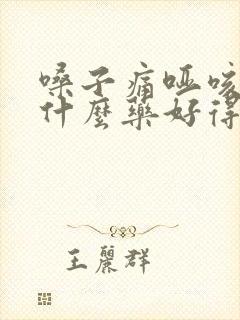 嗓子痛哑咳
什麼藥好得
王麗群